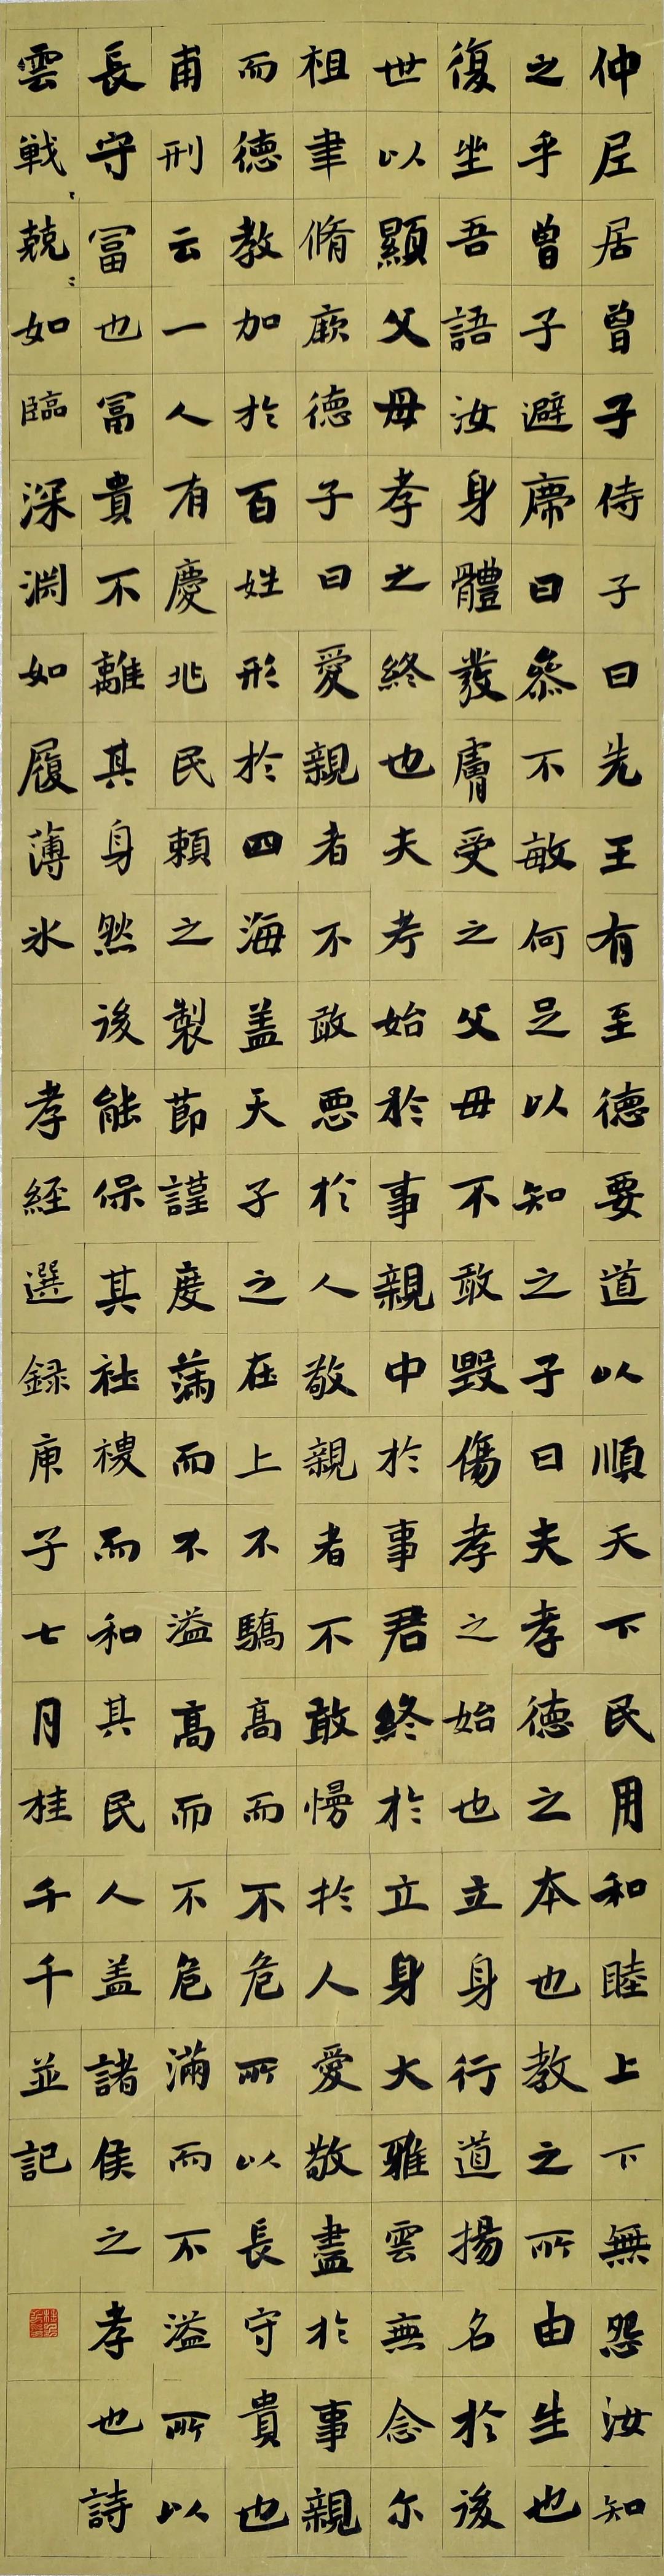 仲尼居曾子侍子曰先王有至德要道以順天下民用和睦上下無怨汝知
之乎曾子避席曰參不敏何足以知之子曰夫孝德之本也教之所由生也
復坐吾語汝身體髮膚受之父母不敢毀傷孝之始也立身行道揚名於後
世以顯父母孝之終也夫孝始於事親中於事君終於立身大雅雲無念尔
祖聿脩厥德子曰愛親者不敢惡於人敬親者不敢慢於人愛敬盡於事親
而德教加於百姓形於四海盖天子之在上不驕高而不危所以長守貴也
甫刑云一人有慶兆民賴之製節謹度滿而不溢高而不危滿而不溢所以
長守冨也冨貴不離其身然後能保其社稷而和其民人盖諸侯之孝也詩
雲戦〻兢〻如臨深淵如履薄冰 孝経選録庚子七月桂千千並記